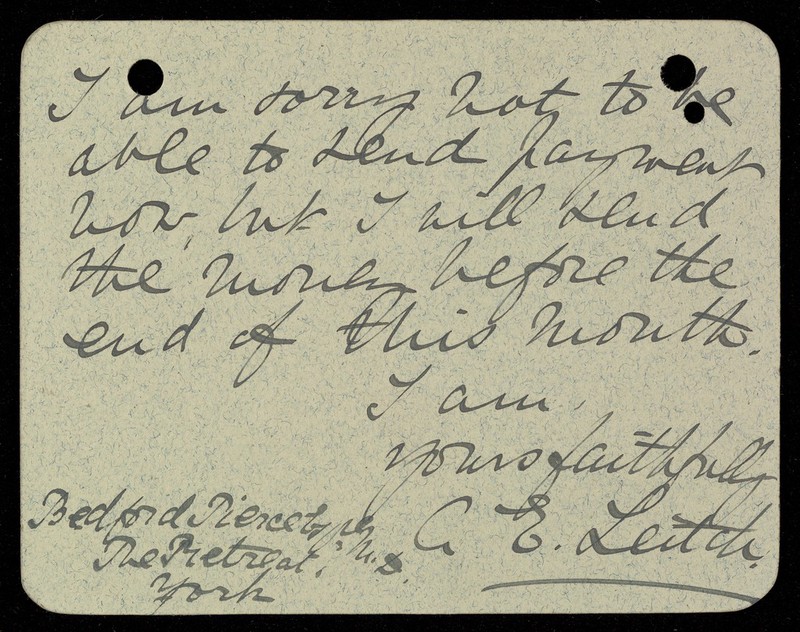 I am sorry not to be
able to send payment
now, but I will send
the money before the
end of this month.
I am
yours faithfully
C E. Leitch.
Bedford Pierce Esq
M.D.
The Retreat.
York